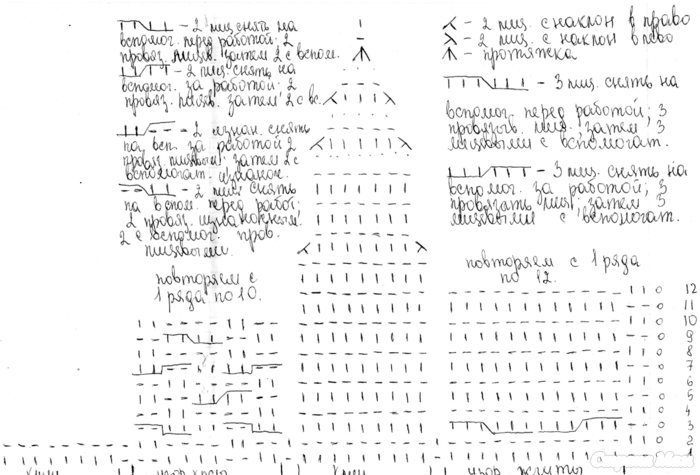 - 2 лиц снять на
вспомог. перед работой; 2
провяз. лицев. затем 2 с вспом.
- 2 лиц. снять на
вспомог. за работой; 2
провяз. лицев. затем 2 с вс.
- 2 изнан. снять
на всп. за работой 2
провяз лицевым; затем 2 с
вспомогат. изнанок.
- 2 лиц снять
на вспом. перед работ;
2 провяз. изнаночным
2 с вспомог. пров.
лицевыми.
повторяем с
1 ряда по 10.
- 2 лиц. с наклон вправо
- 2 лиц. с наклон влево
- протяжка
- 3 лиц. снять на
вспомог. перед работой; 3
провязыв. лиц. затем 3
лицевыми с вспомогат.
- 3 лиц. снять на
вспомог. за работой; 3
провязать лиц; затем 3
лицевыми с вспомогат.
повторяем с 1 ряда
по 12.
12
11
10
9
8
7
6
5
4
3
2